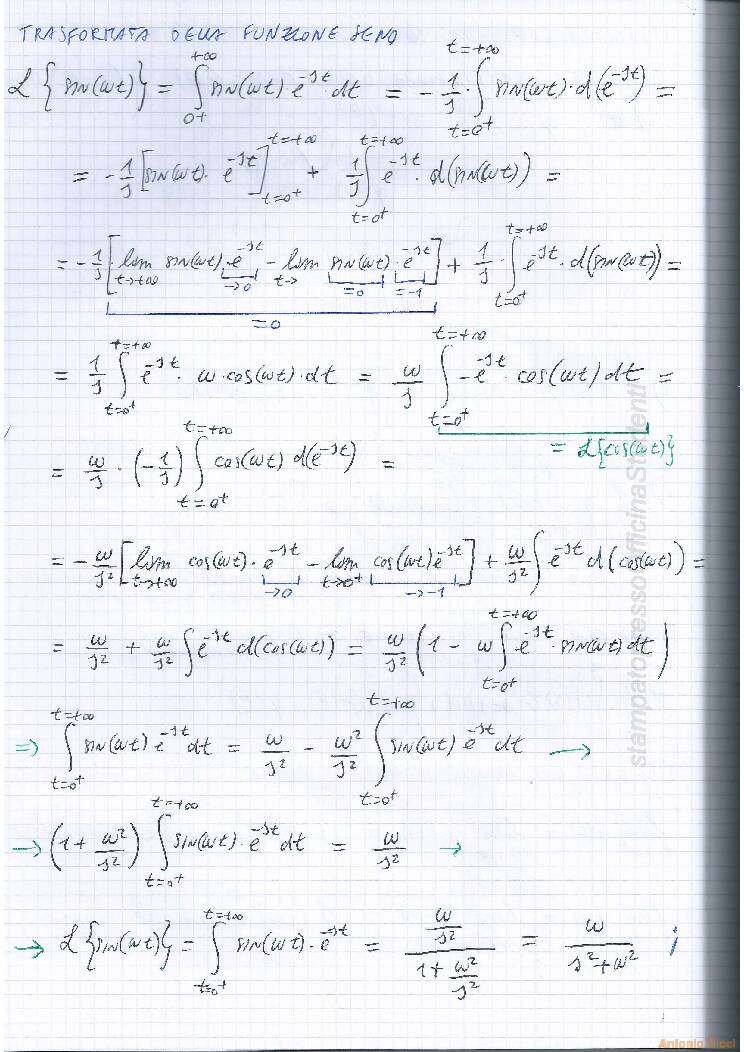 TRASFORMATA DELLA FUNZIONE SENO
ℒ{sin(ωt)} = ∫_{0⁺}^{+∞} sin(ωt)·e^{-st} dt = -1/s · ∫_{t=0⁺}^{t=+∞} sin(ωt)·d(e^{-st}) =
= -1/s [sin(ωt)·e^{-st}]_{t=0⁺}^{t=+∞} + 1/s ∫_{t=0⁺}^{t=+∞} e^{-st}·d(sin(ωt)) =
= -1/s [lim_{t→+∞} sin(ωt)·e^{-st} - lim_{t→} sin(ωt)·e^{-st}] + 1/s · ∫_{t=0⁺}^{t=+∞} e^{-st}·d(sin(ωt)) =
→0 =0 =-1
=0
= 1/s ∫_{t=0⁺}^{t=+∞} e^{-st}·ω·cos(ωt)·dt = ω/s ∫_{t=0⁺}^{t=+∞} -e^{-st}·cos(ωt) dt =
= ℒ{cos(ωt)}
= ω/s · (-1/s) ∫_{t=0⁺}^{t=+∞} cos(ωt) d(e^{-st}) =
= -ω/s² [lim_{t→+∞} cos(ωt)·e^{-st} - lim_{t→0⁺} cos(ωt)e^{-st}] + ω/s² ∫ e^{-st} d(cos(ωt)) =
→0 →-1
= ω/s² + ω/s² ∫ e^{-st} d(cos(ωt)) = ω/s² (1 - ω ∫_{t=0⁺}^{t=+∞} e^{-st}·sin(ωt) dt)
⇒ ∫_{t=0⁺}^{t=+∞} sin(ωt) e^{-st} dt = ω/s² - ω²/s² ∫_{t=0⁺}^{t=+∞} sin(ωt) e^{-st} dt →
→ (1 + ω²/s²) ∫_{t=0⁺}^{t=+∞} sin(ωt)·e^{-st} dt = ω/s² →
→ ℒ{sin(ωt)} = ∫_{t=0⁺}^{t=+∞} sin(ωt)·e^{-st} = (ω/s²)/(1 + ω²/s²) = ω/(s²+ω²) ;
stampatopressoOfficinaStudenti